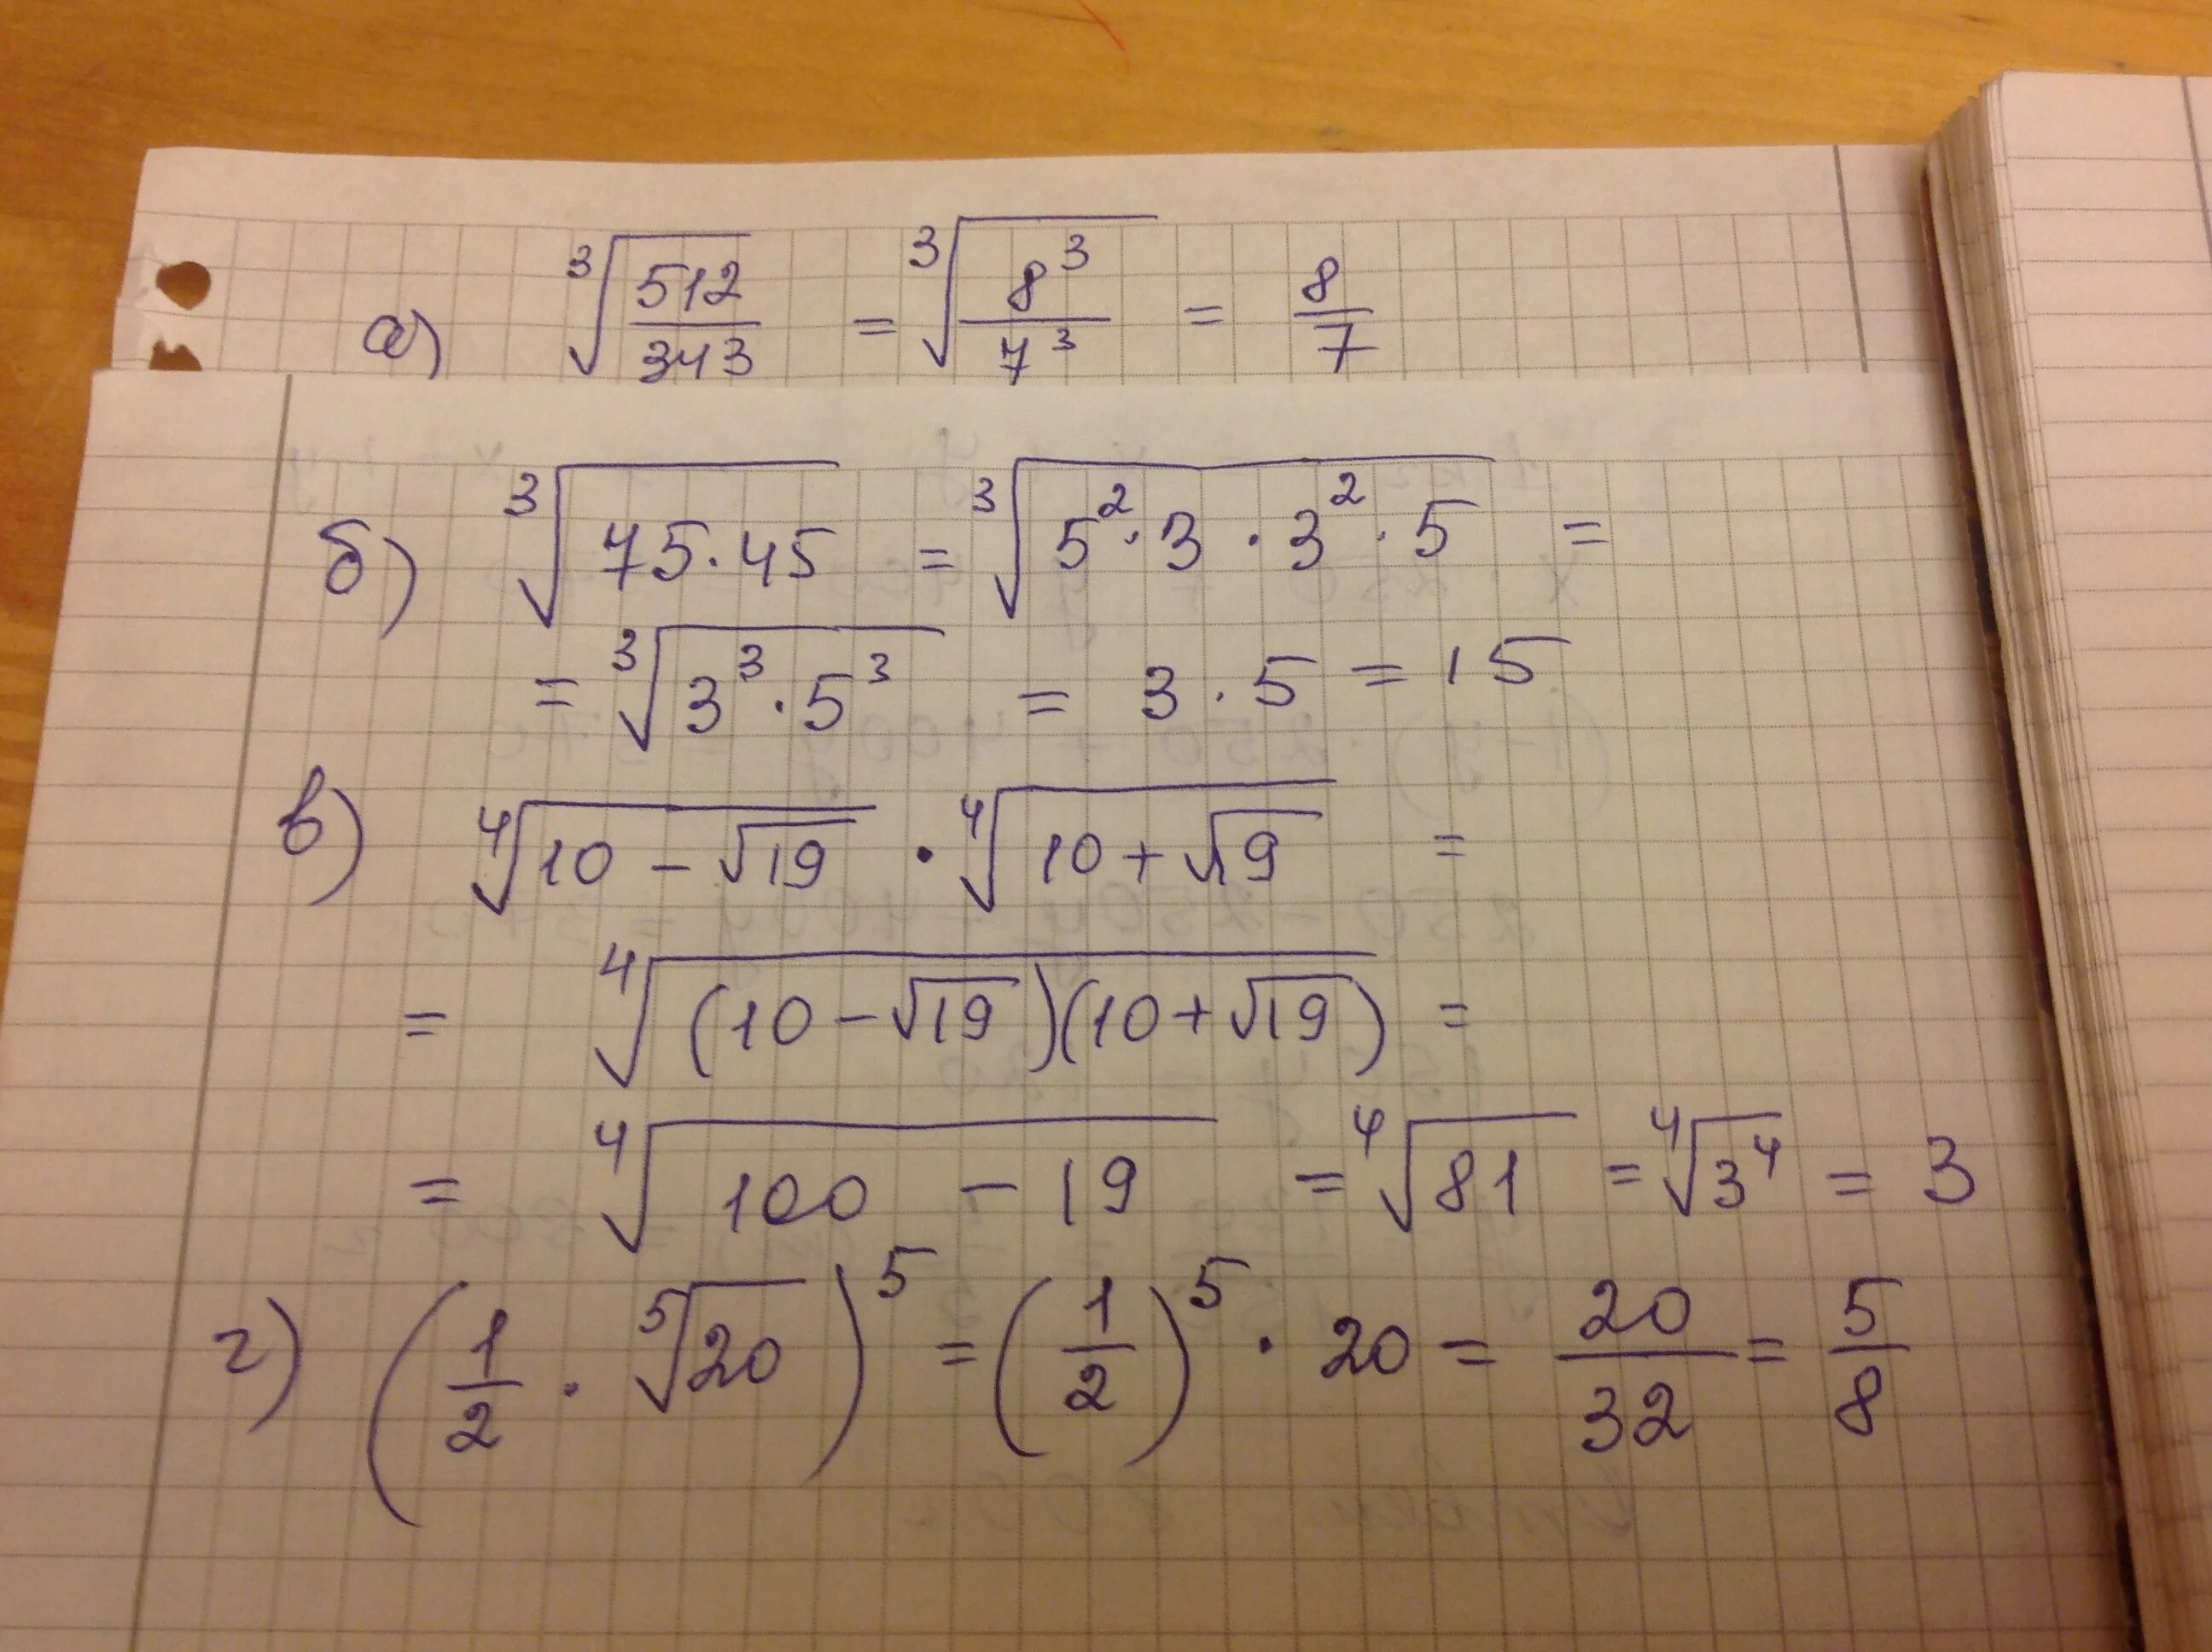 а) ∛(512/343) = ∛(8³/7³) = 8/7
б) ∛(75·45) = ∛(5²·3·3²·5) =
= ∛(3³·5³) = 3·5 = 15
в) ∜(10-√19) · ∜(10+√19) =
= ∜((10-√19)(10+√19)) =
= ∜(100-19) = ∜81 = ∜(3⁴) = 3
г) (1/2 · ⁵√20)⁵ = (1/2)⁵ · 20 = 20/32 = 5/8